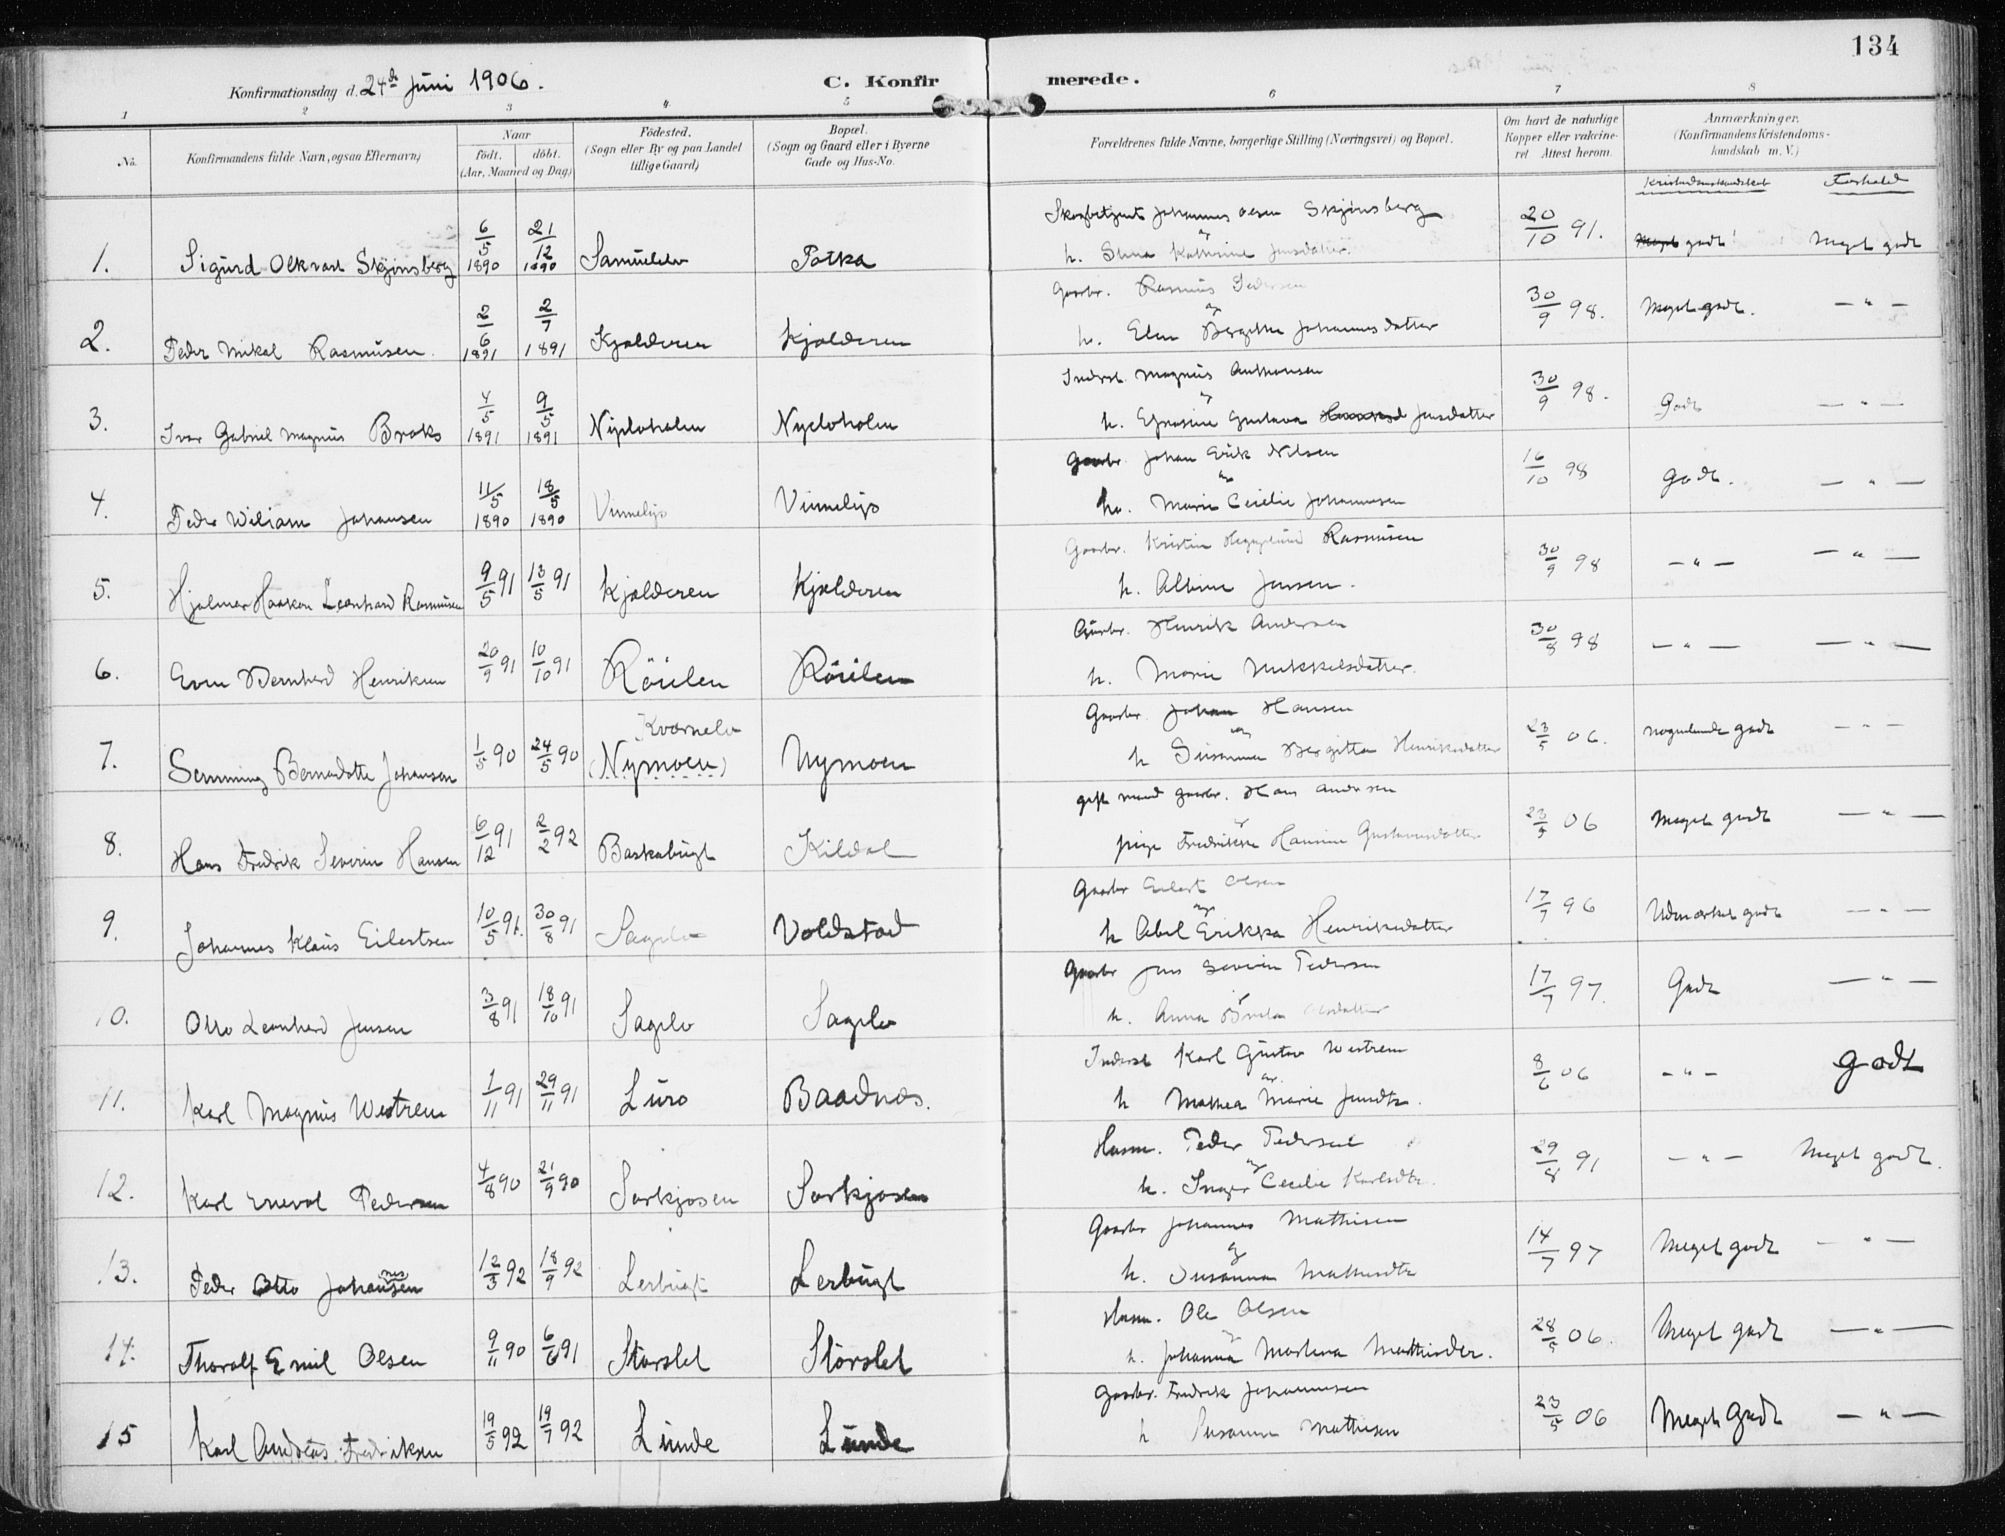 134
Konfirmationsdag d. 24de Juni 1906.
C. Konfirmerede.
1 2 3 4 5 6 7 8
No.
Konfirmandens fulde Navn, ogsaa Efternavn)
Naar
født. døbt.
(Aar, Maaned og Dag)
Fødested.
(Sogn eller By og paa Landet
tillige Gaard)
Bopæl.
(Sogn og Gaard eller i Byerne
Gade og Hus-No.
Forældrenes fulde Navne, borgerlige Stilling (Næringsvei) og Bopæl.
Om havt de naturlige
Kopper eller vaccine-
ret Attest herom.
Anmærkninger.
(Konfirmandens Kristendoms-
kundskab m. V.)
Kristendomskundskab Forhold
1. Sigurd Olkvart Skjønsberg 6/5 1890 21/12 1890 Samuelelv Potka
Johannes Olsen Skjønsberg
og
h. Stina Kathrine Jensdatter.
20/10 91. godt Meget godt
2. Peder Mikal Rasmusen. 2/6 1891 2/7 1891 Kjælderen Kjælderen
Gaarbr. Rasmus Pedersen
og
h. Elen Bergitte Johannesdatter
30/9 98. Meget godt. — " —
3. Ivar Gabriel Magnus Broks 4/5 1891 9/5 1891 Nyelvholm Nyelvholm
Inderst. Magnus Anthonsen
og
h. Gustava Jensdatter
30/9 98. Godt — " —
4. Peder Wiliam Johansen 11/5 1890 18/5 1890 Vinnelys Vinnelys
Gaarbr. Johan Erik Nilsen
og
h. Marie Cecilie Johannesen
16/10 98 godt. — " —
5. Hjalmar Haakon Leonhard Rasmusen 9/5 91 13/5 91 Kjælderen Kjælderen
Gaarbr. Kristin Rasmusen
h. Albine Jensen.
30/9 98 — " — — " —
6. Even Bernhard Henriksen 20/9 91 10/10 91 Röielen Röielen
Gaarbr. Henrik Andersen
h. Marie Mikkelsdatter.
30/8 98 — " — — " —
7. Semming Bernadotte Johansen 1/5 90 24/5 90 Kvænelv (Nymoen) Nymoen
Gaarbr. Johan Hansen
og
h Susanna Bergitta Henriksdatter
23/5 06. nogenlunde godt — " —
8. Hans Fredrik Severin Hansen 6/12 91 2/2 92 Baskabugt Kildal
gift mand gaarbr. Hans Andersen
og
pige Fredrikke Hansine Gustavusdatter
23/5 06 Meget godt — " —
9. Johannes Klaus Eilertsen 10/5 91. 30/8 91 Sagelv Voldstad
Gaarbr Eilert Olsen
og
h Abel Erikka Henriksdatter
17/7 96 Udmærket godt — " —
10. Otto Leonhard Jensen 3/8 91 18/10 91 Sagelv Sagelv
Gaarbr Jens Severin Pedersen
h. Anna
17/7 97. Godt — " —
11. Karl Magnus Westrem 1/11 91 29/11 91 Lüro Baadnæs.
Inderst Karl Gustav Westrem
og
h Mathea Marie Jensdtr.
8/6 06 — " — godt
12. Karl Eneval Pedersen 4/8 90 21/9 90 Sørkjosen Sørkjosen
Husm. Peder Pedersen
og
h. Inger Cecilie Karlsdtr.
29/8 91 — " — Meget godt.
13. Peder Otto Johansen nes 12/3 92 18/9 92 Lerbugt Lerbugt
Gaarbr Johannes Mathisen
og
h. Susanna Mathisdtr
14/7 97 Meget godt — " —
14. Thoralf Emil Olsen 9/11 90 6/6 91 Storslet Storslet
Husm. Ole Olsen
og
h. Johanna Martina Mathisdtr.
28/5 06. Meget godt — " —
15 Karl Andreas Fredriksen 19/5 92 19/7 92 Lunde Lunde
Gaarbr. Fredrik Johannesen
h Susanna Mathisen
23/5 06 Meget Godt — " —